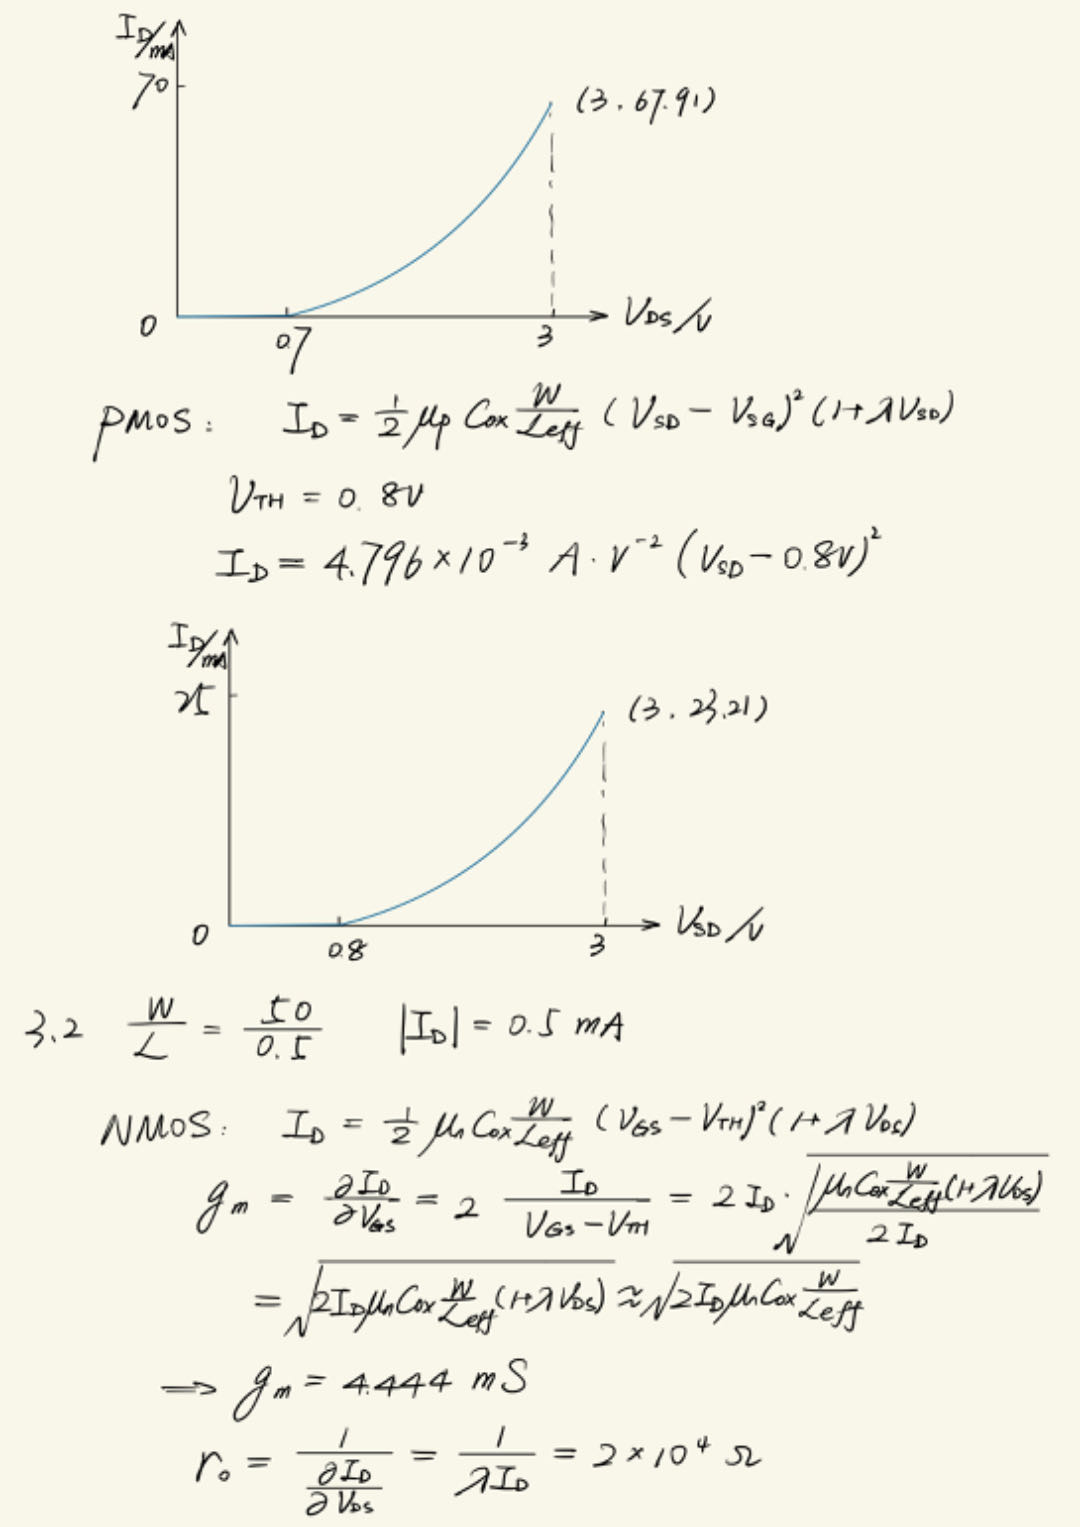 I_D/mA
70
(3. 67.91)
0
0.7
3
V_DS/V
PMOS: I_D = 1/2 μp Cox W/Leff (V_SD − V_SG)² (1+λV_SD)
V_TH = 0.8V
I_D = 4.796×10⁻³ A·V⁻² (V_SD − 0.8V)²
I_D/mA
25
(3. 23.21)
0
0.8
3
V_SD/V
3.2 W/L = 50/0.5 |I_D| = 0.5 mA
NMOS: I_D = 1/2 μn Cox W/Leff (V_GS − V_TH)² (1+λV_DS)
g_m = ∂I_D/∂V_GS = 2 I_D/(V_GS − V_TH) = 2I_D · √(μn Cox W/Leff (1+λV_DS) / 2I_D)
= √(2I_D μn Cox W/Leff (1+λV_DS)) ≈ √(2I_D μn Cox W/Leff)
⇒ g_m = 4.444 mS
r_o = 1/(∂I_D/∂V_DS) = 1/(λI_D) = 2×10⁴ Ω